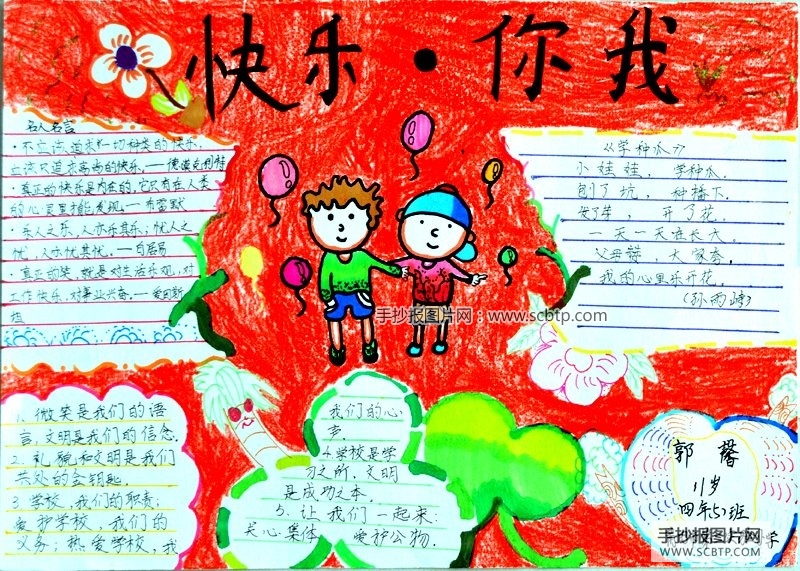 快乐·你我
名人名言
·不应该追求一切种类的快乐,
应该只追求高尚的快乐。——德谟克利特
·真正的快乐是内在的,它只有在人类
的心灵里才能发现。——布雷默
·乐人之乐,人亦乐其乐;忧人之
忧,人亦忧其忧。——白居易
·真正的笑,就是对生活乐观,对
工作快乐,对事业兴奋。——爱因斯
坦
《学种瓜》
小娃娃,学种瓜.
刨了坑,种播下.
发了芽,开了花.
一天一天在长大.
我的心里乐开花.
手抄报图片网:www.scbtp.com
1.微笑是我们的语
言,文明是我们的信念.
2.礼貌和文明是我们
共处的金钥匙.
3.学校,我们的职责;
爱护学校,我们的
义务;热爱学校,我
我们的心
声.
4.学校是学
习之所,文明
是成功之本.
5.让我们一起来:
关心集体,爱护公物.
郭馨
11岁
四年5班
手抄报图片网
WWW.SCBTP.COM